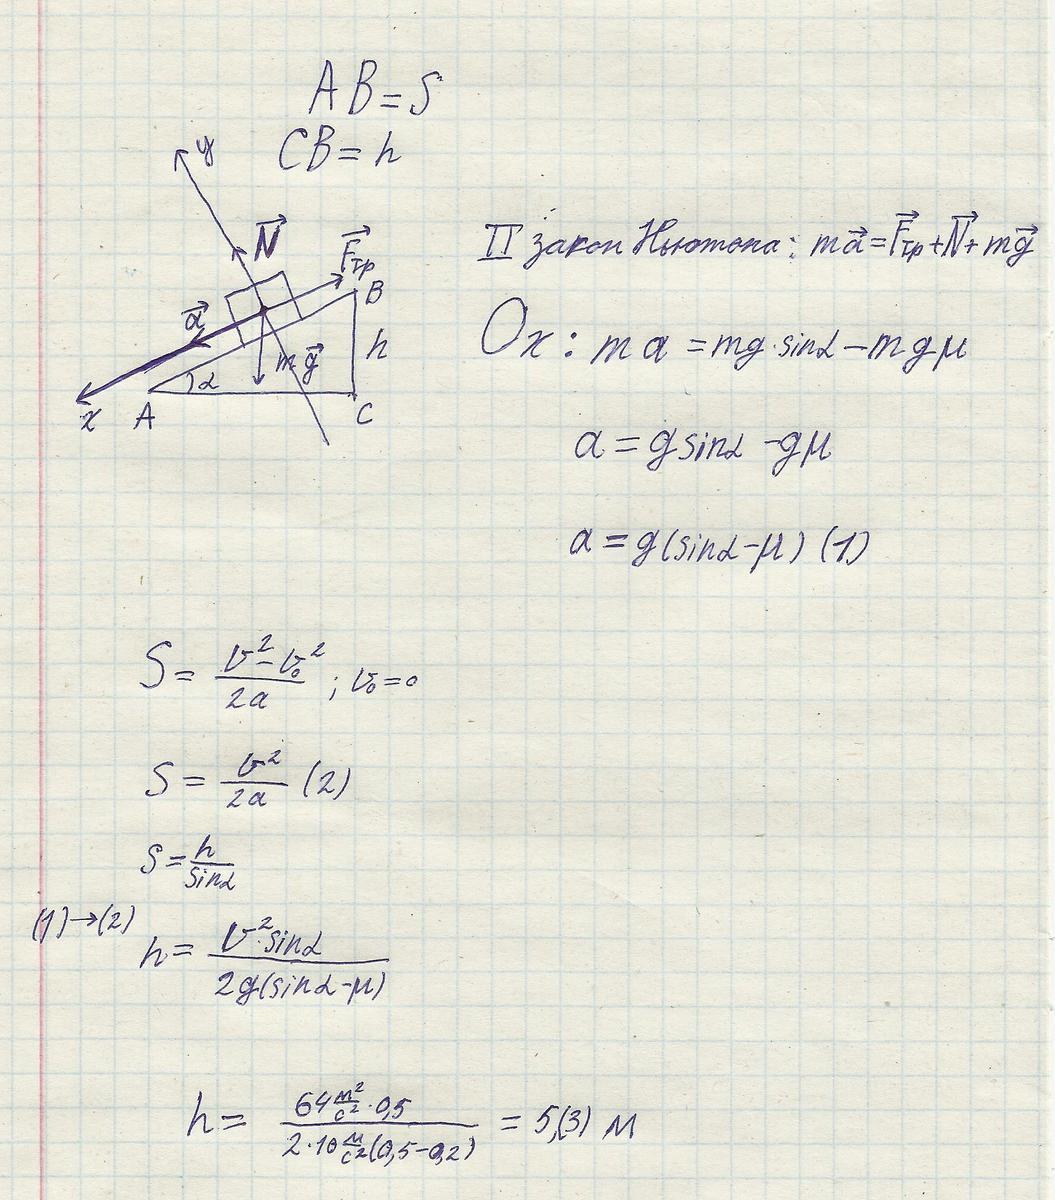 AB=S
CB=h
y
N⃗
F⃗тр
B
a⃗
h
mg⃗
α
x
A
C
II закон Ньютона: ma⃗=F⃗тр+N⃗+mg⃗
Ox: ma=mg·sinα-mgμ
a=gsinα-gμ
a=g(sinα-μ) (1)
S=(v²-v₀²)/2a ; v₀=0
S=v²/2a (2)
S=h/sinα
(1)→(2)
h=v²·sinα/2g(sinα-μ)
h=64м²/с²·0,5/2·10м/с²(0,5-0,2)=5,(3) м